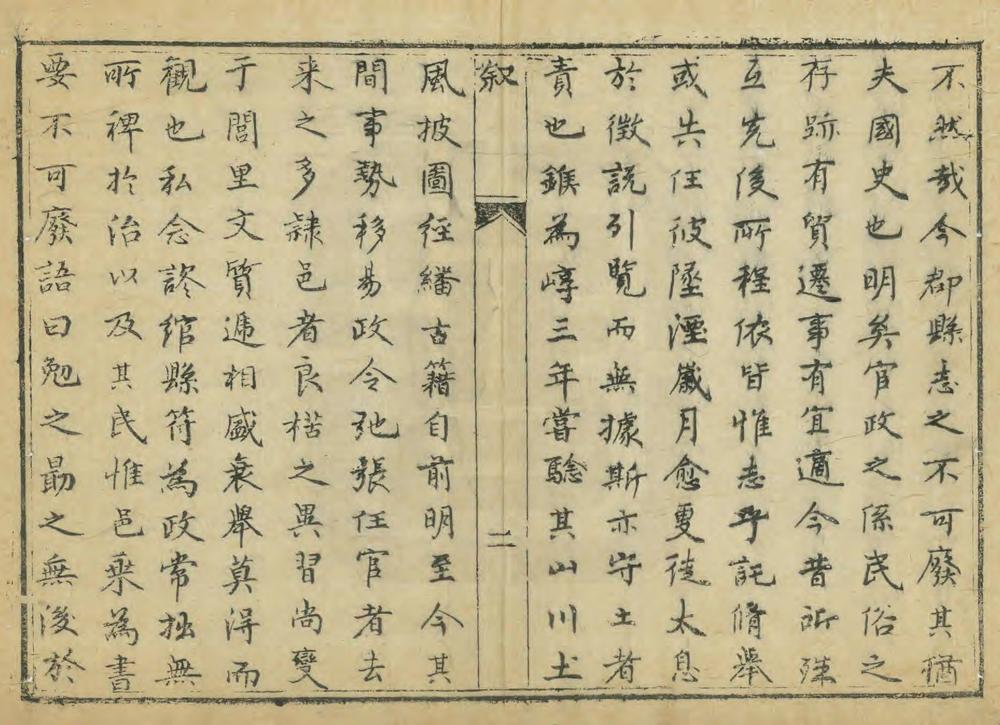 不然哉今郡縣志之不可廢其猶
夫國史也明矣官政之係民俗之
存跡有貿遷事有宜適今昔所殊
互先後所程依皆惟志乎託脩舉
或失任彼墜湮歲月愈更徒太息
於徵説引覽而無據斯亦守土者
責也鏃為崞三年嘗騐其山川土
叙
二
風披圖経繙古籍自前明至今其
間事勢移易政令弛張任官者去
来之多隷邑者良楛之異習尚變
于閭里文質遞相盛衰舉莫淂而
觀也私念謬綰縣符為政常拙無
所裨扵治以及其民惟邑乗為書
要不可廢語曰勉之勗之無後於